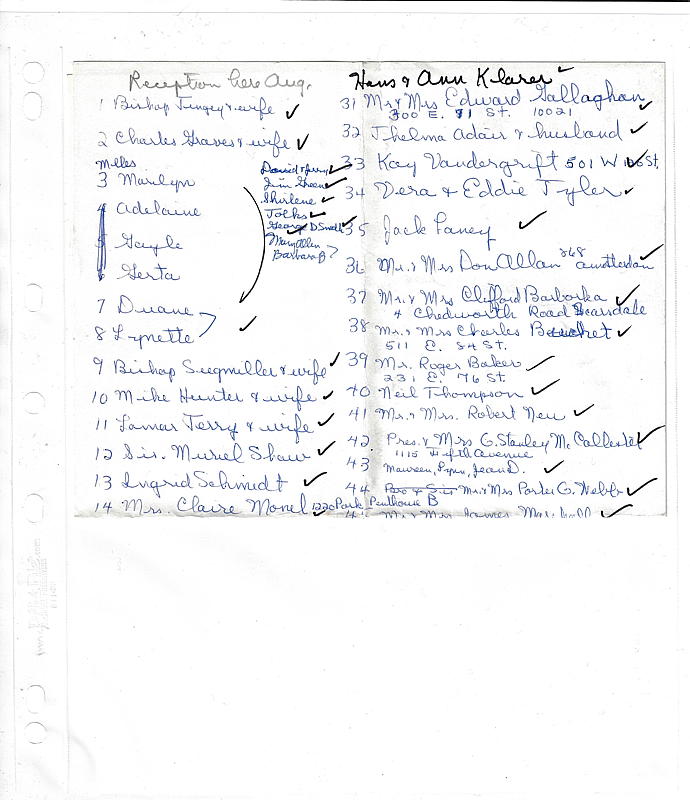 Reception here Aug.
1 Bishop Tingey & wife
2 Charles Graves & wife
Melles
3 Marilyn
4 Adelaine
5 Gayle
6 Gerta
7 Duane
8 Lynette
9 Bishop Siegmiller & wife
10 Mike Hunter & wife
11 Lamar Terry & wife
12 Sis. Muriel Shaw
13 Ingrid Schmidt
14 Mrs. Claire Monel 1220 Park Penthouse B
David & Jerry
Jim Greene
Shirlene
Tolks
George D Small
Mary Allen
Barbara B
Hans & Ann Klarer
31 Mr & Mrs Edward Gallaghan
300 E. 71 St. 10021
32 Thelma Adair & husband
33 Kay Vandergrift 501 W St.
34 Vera & Eddie Tyler
35 Jack Paney
36 Mr. & Mrs Don Allan 268 Amsterdam
37 Mr. & Mrs Clifford Barborka
4 Chedworth Road Scarsdale
38 Mr. & Mrs Charles
511 E. 84 St.
39 Mr. Roger Baker
231 E. 76 St.
40 Neil Thompson
41 Mr. & Mrs. Robert Neu
42 Pres. & Mrs G. Stanley McCallester
1115 Fifth Avenue
43 Maureen, Lynn, Jean D.
44 Bro & Sis Mr. & Mrs Porter G. Webb
Mr & Mrs James